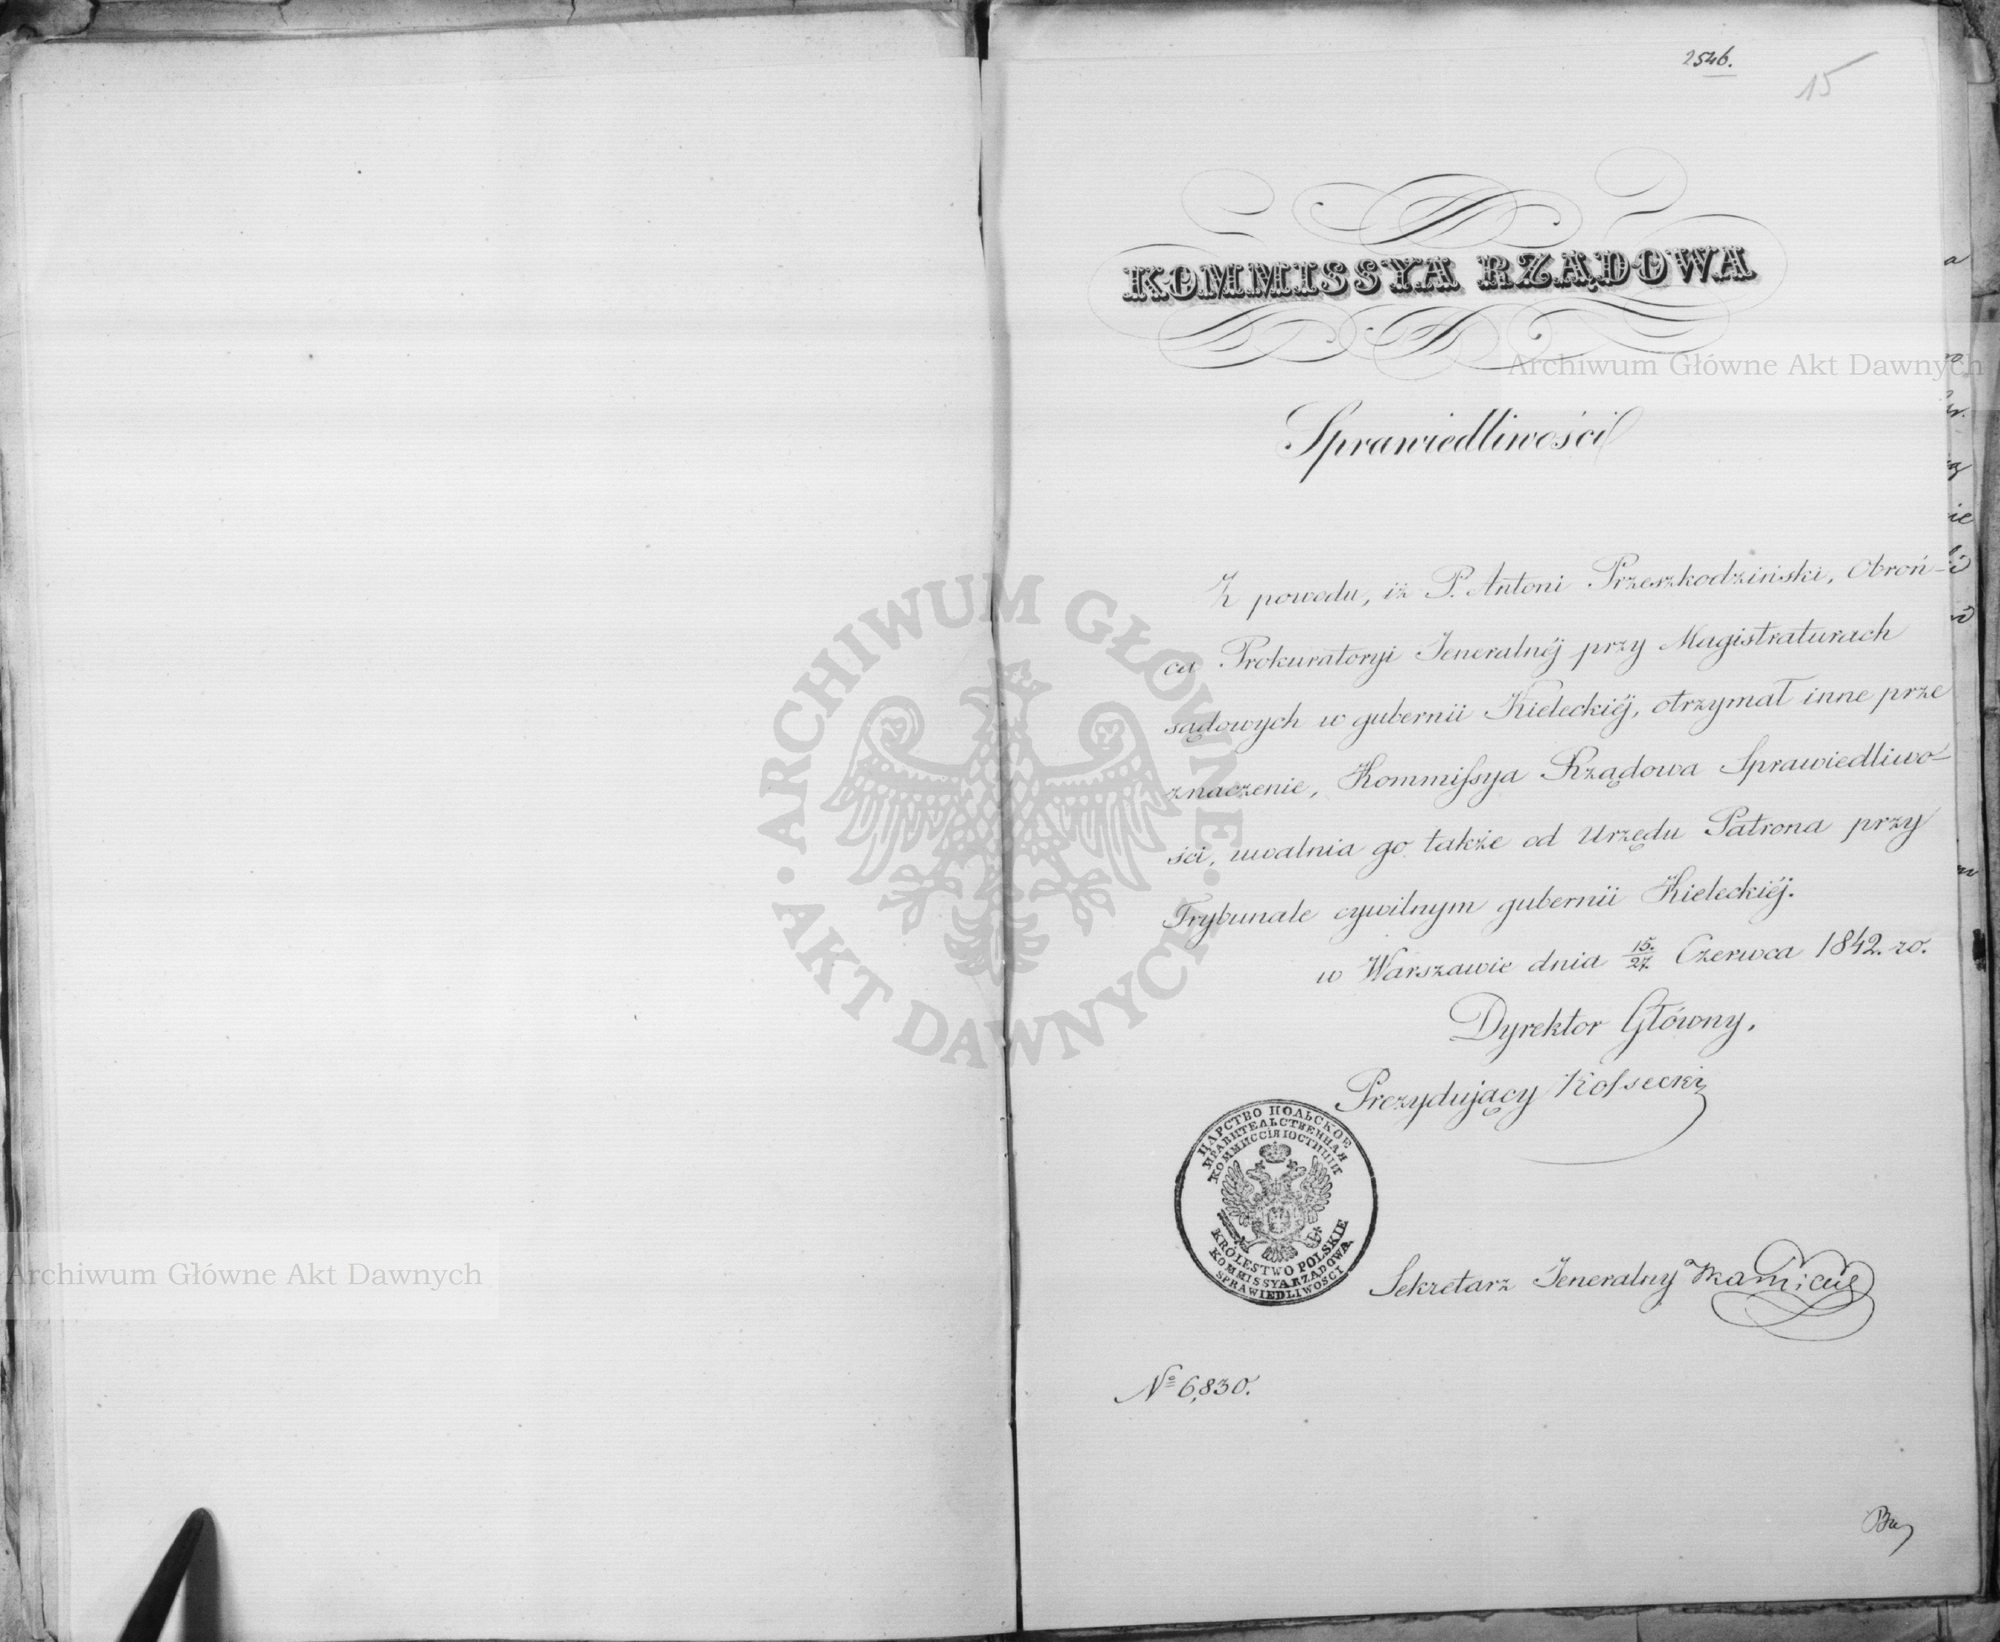 2546.
15
KOMMISSYA RZĄDOWA
Sprawiedliwości
Z powodu, iż P. Antoni Przeszkodziński, Obroń-
ca Prokuratoryi Jeneralnéj przy Magistraturach
sądowych w gubernii Kieleckiéj, otrzymał inne prze
znaczenie, Kommissya Rządowa Sprawiedliwo-
ści, uwalnia go także od Urzędu Patrona przy
Trybunale cywilnym gubernii Kieleckiéj.
w Warszawie dnia 15/27. Czerwca 1842. ro.
Dyrektor Główny,
Prezydujący Kossecki
ЦАРСТВО ПОЛЬСКОЕ
ПРАВИТЕЛЬСТВЕННАЯ
КОММИССІЯ ЮСТИЦІИ
KRÓLESTWO POLSKIE
KOMMISSYA RZĄDOWA
SPRAWIEDLIWOSCI
Sekretarz Jeneralny
No 6,830.
Archiwum Główne Akt Dawnych
Archiwum Główne Akt Dawnych
ARCHIWUM GŁÓWNE AKT DAWNYCH